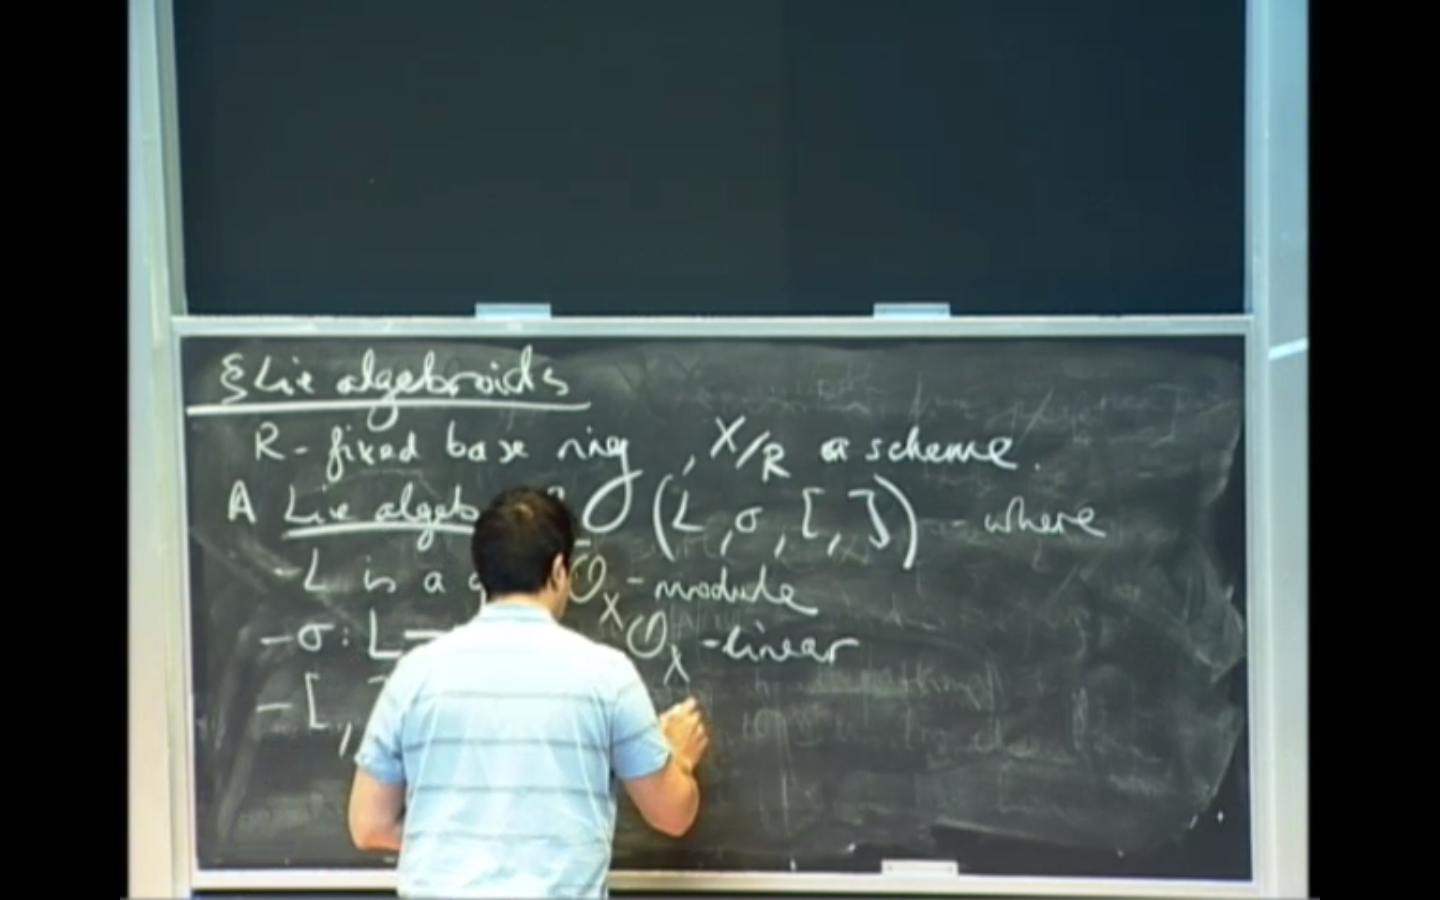 § Lie algebroids
R - fixed base ring, X/R a scheme.
A Lie algeb (L, σ, [,]) - where
- L is a O_X - module
- σ: L → O_X - linear
- [,